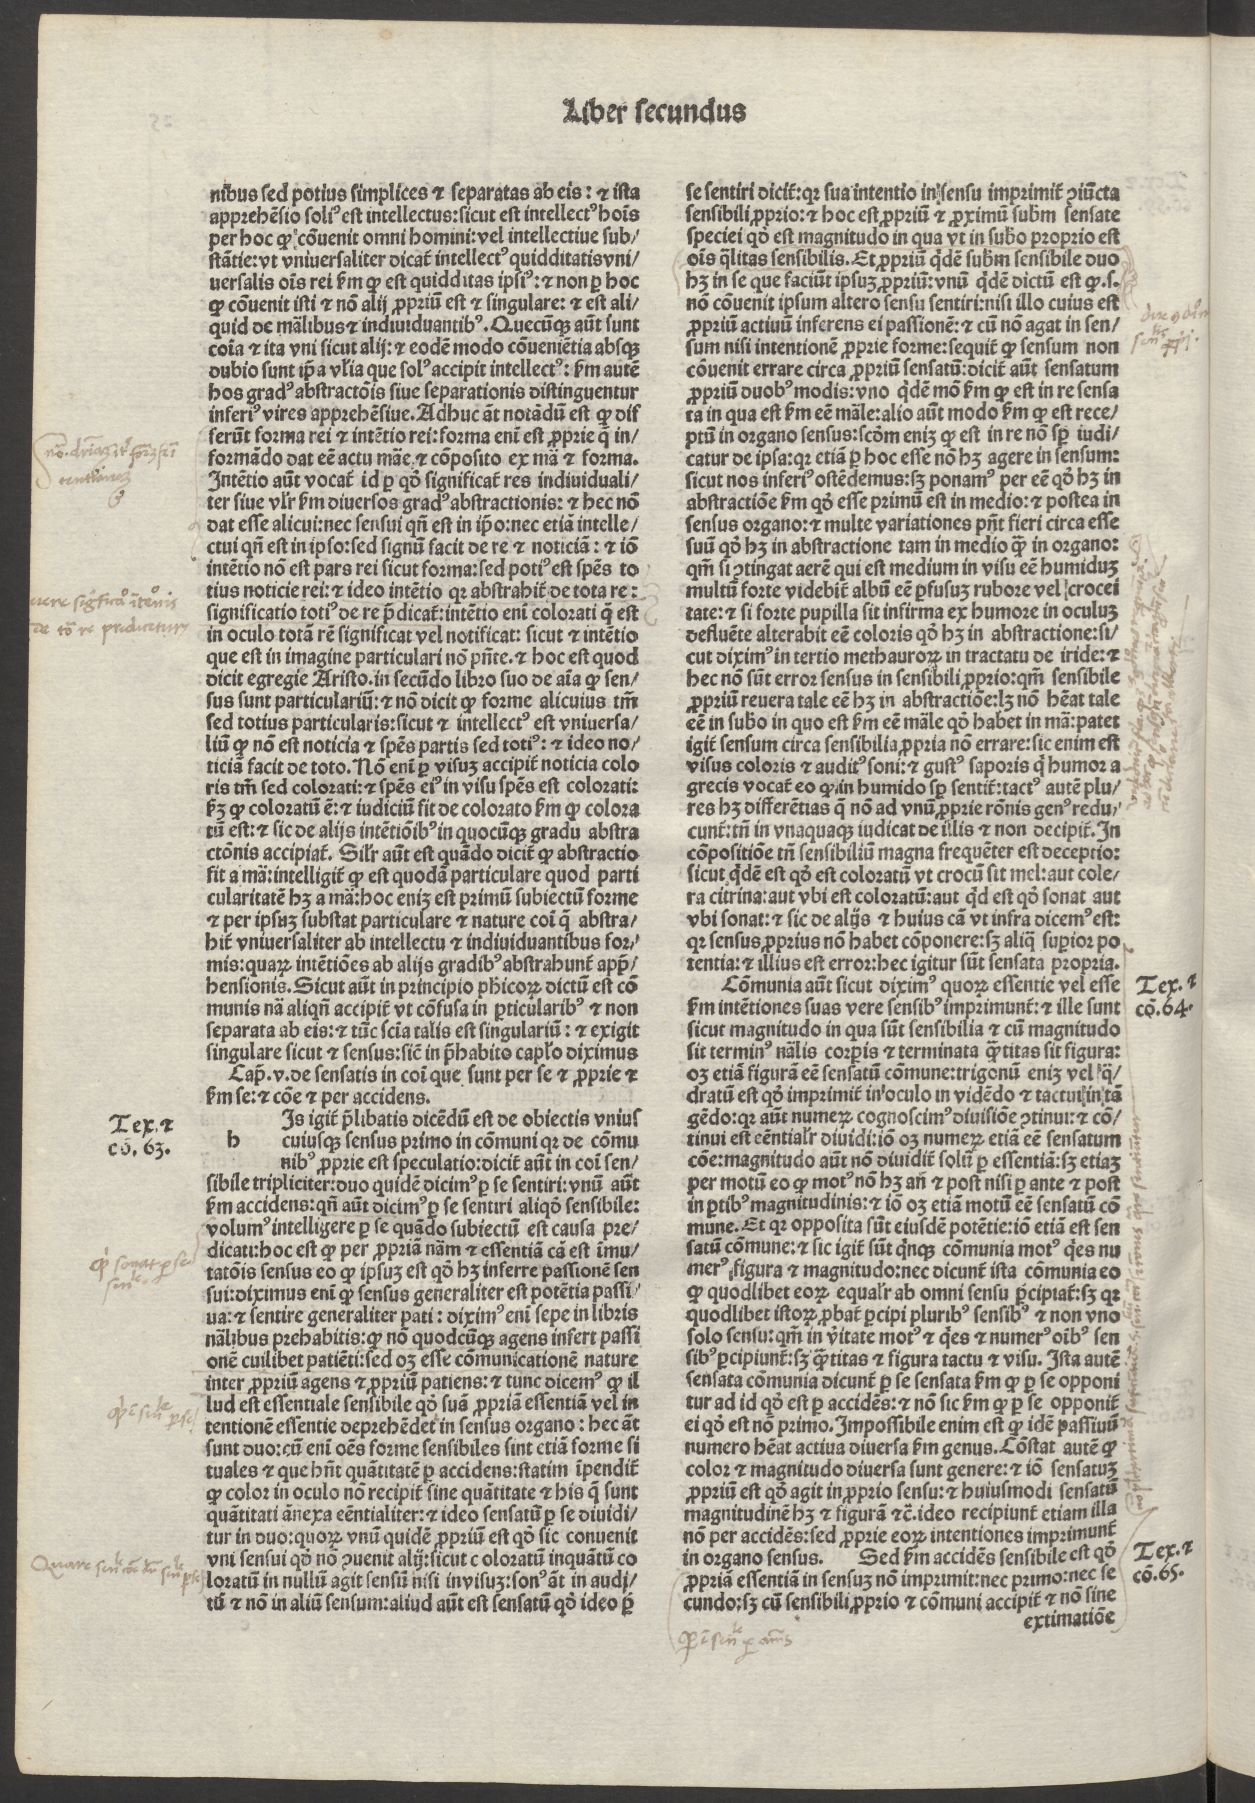 Liber secundus
nibus sed potius simplices ⁊ separatas ab eis: ⁊ ista
apprehēsio soliꝰ est intellectus: sicut est intellectꝰ hoīs
per hoc ꝙ cōuenit omni homini: vel intellectiue sub/
stātie: vt vniuersaliter dicat̄ intellectꝰ quidditatis vni/
uersalis oīs rei ẜm ꝙ est quidditas ipsiꝰ: ⁊ non ꝑ hoc
ꝙ cōuenit isti ⁊ nō alij ꝓpriū est ⁊ singulare: ⁊ est ali/
quid de mālibus ⁊ indiuiduantibꝰ. Quecūqꝫ aūt sunt
coīa ⁊ ita vni sicut alij: ⁊ eodē modo cōueniētia absqꝫ
dubio sunt ip̄a vl̄ia que solꝰ accipit intellectꝰ: ẜm autē
hos gradꝰ abstractōis siue separationis distinguentur
inferiꝰ vires apprehēsiue. Adhuc āt notādū est ꝙ dif
ferūt forma rei ⁊ intētio rei: forma enī est ꝓprie q̄ in/
formādo dat eē actu māe ⁊ cōposito ex mā ⁊ forma.
Intētio aūt vocat̄ id ꝑ qđ significat̄ res indiuiduali/
ter siue vlr̄ ẜm diuersos gradꝰ abstractionis: ⁊ hec nō
dat esse alicui: nec sensui qn̄ est in ip̄o: nec etiā intelle/
ctui qn̄ est in ipso: sed signū facit de re ⁊ noticiā: ⁊ iō
intētio nō est pars rei sicut forma: sed potiꝰ est spēs to
tius noticie rei: ⁊ ideo intētio qr abstrahit̄ de tota re:
significatio totiꝰ de re p̄dicat̄: intētio enī colorati q̄ est
in oculo totā rē significat vel notificat: sicut ⁊ intētio
que est in imagine particulari nō pn̄te. ⁊ hoc est quod
dicit egregie Aristo. in secūdo libro suo de aīa ꝙ sen/
sus sunt particulariū: ⁊ nō dicit ꝙ forme alicuius tm̄
sed totius particularis: sicut ⁊ intellectꝰ est vniuersa/
liū ꝙ nō est noticia ⁊ spēs partis sed totiꝰ: ⁊ ideo no/
ticiā facit de toto. Nō enī ꝑ visuꝫ accipit̄ noticia colo
ris tm̄ sed colorati: ⁊ spēs eiꝰ in visu spēs est colorati:
ẜꝫ ꝙ coloratū ē: ⁊ iudiciū fit de colorato ẜm ꝙ colora
tū est: ⁊ sic de alijs intētiōibꝰ in quocūqꝫ gradu abstra
ctōnis accipiat̄. Silr̄ aūt est quādo dicit̄ ꝙ abstractio
fit a mā: intelligit̄ ꝙ est quodā particulare quod parti
cularitatē hꝫ a mā: hoc eniꝫ est primū subiectū forme
⁊ per ipsuꝫ substat particulare ⁊ nature coī q̄ abstra/
hit̄ vniuersaliter ab intellectu ⁊ indiuiduantibus for/
mis: quaꝝ intētiōes ab alijs gradibꝰ abstrahunt̄ app̄/
hensionis. Sicut aūt in principio phicoꝝ dictū est cō
munis nā aliqn̄ accipit̄ vt cōfusa in ꝑticularibꝰ ⁊ non
separata ab eis: ⁊ tūc scīa talis est singulariū: ⁊ exigit
singulare sicut ⁊ sensus: sicē in p̄habito capl̄o diximus
Cap̄. v. de sensatis in coī que sunt per se ⁊ ꝓprie ⁊
ẜm se: ⁊ cōe ⁊ per accidens.
Tex. ⁊
cō. 63.
h
Is igit̄ p̄libatis dicēdū est de obiectis vnius
cuiusqꝫ sensus primo in cōmuni qr de cōmu
nibꝰ ꝓprie est speculatio: dicit̄ aūt in coī sen/
sibile tripliciter: duo quidē dicimꝰ ꝑ se sentiri: vnū aūt
ẜm accidens: qn̄ aūt dicimꝰ ꝑ se sentiri aliqđ sensibile:
volumꝰ intelligere ꝑ se quādo subiectū est causa pre/
dicati: hoc est ꝙ per ꝓpriā nām ⁊ essentiā cā est īmu/
tatōis sensus eo ꝙ ipsuꝫ est qđ hꝫ inferre passionē sen
sui: diximus enī ꝙ sensus generaliter est potētia passi/
ua: ⁊ sentire generaliter pati: diximꝰ enī sepe in libris
nālibus prehabitis: ꝙ nō quodcūqꝫ agens infert passi
onē cuilibet patiēti: sed oꝫ esse cōmunicationē nature
inter ꝓpriū agens ⁊ ꝓpriū patiens: ⁊ tunc dicemꝰ ꝙ il
lud est essentiale sensibile qđ suā ꝓpriā essentiā vel in
tentionē essentie deprehēdet in sensus organo: hec āt
sunt duo: cū enī oēs forme sensibiles sint etiā forme si
tuales ⁊ que hn̄t quātitatē ꝑ accidens: statim īpendit̄
ꝙ color in oculo nō recipit̄ sine quātitate ⁊ his q̄ sunt
quātitati ānexa eēntialiter: ⁊ ideo sensatū ꝑ se diuidi/
tur in duo: quoꝝ vnū quidē ꝓpriū est qđ sic conuenit
vni sensui qđ nō ꝯuenit alij: sicut coloratū inquātū co
loratū in nullū agit sensū nisi in visuꝫ: sonꝰ āt in audi/
tū ⁊ nō in aliū sensum: aliud aūt est sensatū qđ ideo ꝑ
se sentiri dicit̄: qr sua intentio in sensu imprimit̄ ꝯiūcta
sensibili ꝓprio: ⁊ hoc est ꝓpriū ⁊ ꝓximū subm̄ sensate
speciei qđ est magnitudo in qua vt in subo proprio est
oīs q̄litas sensibilis. Et ꝓpriū qđē subm̄ sensibile duo
hꝫ in se que faciūt ipsuꝫ ꝓpriū: vnū qđē dictū est ꝙ .s.
nō cōuenit ipsum altero sensu sentiri: nisi illo cuius est
ꝓpriū actiuū inferens ei passionē: ⁊ cū nō agat in sen/
sum nisi intentionē ꝓprie forme: sequit̄ ꝙ sensum non
cōuenit errare circa ꝓpriū sensatū: dicit̄ aūt sensatum
ꝓpriū duobꝰ modis: vno qđē mō ẜm ꝙ est in re sensa
ta in qua est ẜm eē māle: alio aūt modo ẜm ꝙ est rece/
ptū in organo sensus: scdm eniꝫ ꝙ est in re nō sꝑ iudi/
catur de ipsa: qr etiā ꝑ hoc esse nō hꝫ agere in sensum:
sicut nos inferiꝰ ostēdemus: sꝫ ponamꝰ per eē qđ hꝫ in
abstractiōe ẜm qđ esse primū est in medio: ⁊ postea in
sensus organo: ⁊ multe variationes pn̄t fieri circa esse
suū qđ hꝫ in abstractione tam in medio q̄ꝫ in organo:
qm̄ si ꝯtingat aerē qui est medium in visu eē humiduꝫ
multū forte videbit̄ albū eē ꝑfusuꝫ rubore vel crocei
tate: ⁊ si forte pupilla sit infirma ex humore in oculuꝫ
defluēte alterabit eē coloris qđ hꝫ in abstractione: si/
cut diximꝰ in tertio methauroꝝ in tractatu de iride: ⁊
hec nō sūt error sensus in sensibili ꝓprio: qm̄ sensibile
ꝓpriū reuera tale eē hꝫ in abstractiōe: lꝫ nō hēat tale
eē in subo in quo est ẜm eē māle qđ habet in mā: patet
igit̄ sensum circa sensibilia ꝓpria nō errare: sic enim est
visus coloris ⁊ auditꝰ soni: ⁊ gustꝰ saporis q̄ humor a
grecis vocat̄ eo ꝙ in humido sꝑ sentit̄: tactꝰ autē plu/
res hꝫ differētias q̄ nō ad vnū ꝓprie rōnis genꝰ redu/
cunt̄: tn̄ in vnaquaqꝫ iudicat de illis ⁊ non decipit̄. In
cōpositiōe tn̄ sensibiliū magna frequēter est deceptio:
sicut qđē est qđ est coloratū vt crocū sit mel: aut cole/
ra citrina: aut vbi est coloratū: aut qđ est qđ sonat aut
vbi sonat: ⁊ sic de alijs ⁊ huius cā vt infra dicemꝰ est:
qr sensus ꝓprius nō habet cōponere: sꝫ aliq̄ supior po
tentia: ⁊ illius est error: hec igitur sūt sensata propria.
Cōmunia aūt sicut diximꝰ quoꝝ essentie vel esse
Tex. ⁊
cō. 64.
ẜm intētiones suas vere sensibꝰ imprimunt̄: ⁊ ille sunt
sicut magnitudo in qua sūt sensibilia ⁊ cū magnitudo
sit terminꝰ nālis corꝑis ⁊ terminata q̄ꝫtitas sit figura:
oꝫ etiā figurā eē sensatū cōmune: trigonū eniꝫ vel q̄/
dratū est qđ imprimit̄ in oculo in vidēdo ⁊ tactui in tā
gēdo: qr aūt numeꝝ cognoscimꝰ diuisiōe ꝯtinui: ⁊ cō/
tinui est eēntialr̄ diuidi: iō oꝫ numeꝝ etiā eē sensatum
cōe: magnitudo aūt nō diuidit̄ solū ꝑ essentiā: sꝫ etiaꝫ
per motū eo ꝙ motꝰ nō hꝫ an̄ ⁊ post nisi ꝑ ante ⁊ post
in ꝑtibꝰ magnitudinis: ⁊ iō oꝫ etiā motū eē sensatū cō
mune. Et qr opposita sūt eiusdē potētie: iō etiā est sen
satū cōmune: ⁊ sic igit̄ sūt q̄nqꝫ cōmunia motꝰ q̄es nu
merꝰ figura ⁊ magnitudo: nec dicunt̄ ista cōmunia eo
ꝙ quodlibet eoꝝ equalr̄ ab omni sensu ꝑcipiat̄: sꝫ qr
quodlibet istoꝝ ꝓbat̄ ꝑcipi pluribꝰ sensibꝰ ⁊ non vno
solo sensu: qm̄ in v̄itate motꝰ ⁊ q̄es ⁊ numerꝰ oībꝰ sen
sibꝰ ꝑcipiunt̄: sꝫ q̄ꝫtitas ⁊ figura tactu ⁊ visu. Ista autē
sensata cōmunia dicunt̄ ꝑ se sensata ẜm ꝙ ꝑ se opponi
tur ad id qđ est ꝑ accidēs: ⁊ nō sic ẜm ꝙ ꝑ se opponit̄
ei qđ est nō primo. Impossibile enim est ꝙ idē passiuū
numero hēat actiua diuersa ẜm genus. Cōstat autē ꝙ
color ⁊ magnitudo diuersa sunt genere: ⁊ iō sensatuꝫ
ꝓpriū est qđ agit in ꝓprio sensu: ⁊ huiusmodi sensatū
magnitudinē hꝫ ⁊ figurā ⁊c̄. ideo recipiunt̄ etiam illa
nō per accidēs: sed ꝓprie eoꝝ intentiones imprimunt̄
in organo sensus. Sed ẜm accidēs sensibile est qđ
Tex. ⁊
cō. 65.
ꝓpriā essentiā in sensuꝫ nō imprimit: nec primo: nec se
cundo: sꝫ cū sensibili ꝓprio ⁊ cōmuni accipit̄ ⁊ nō sine
extimatiōe